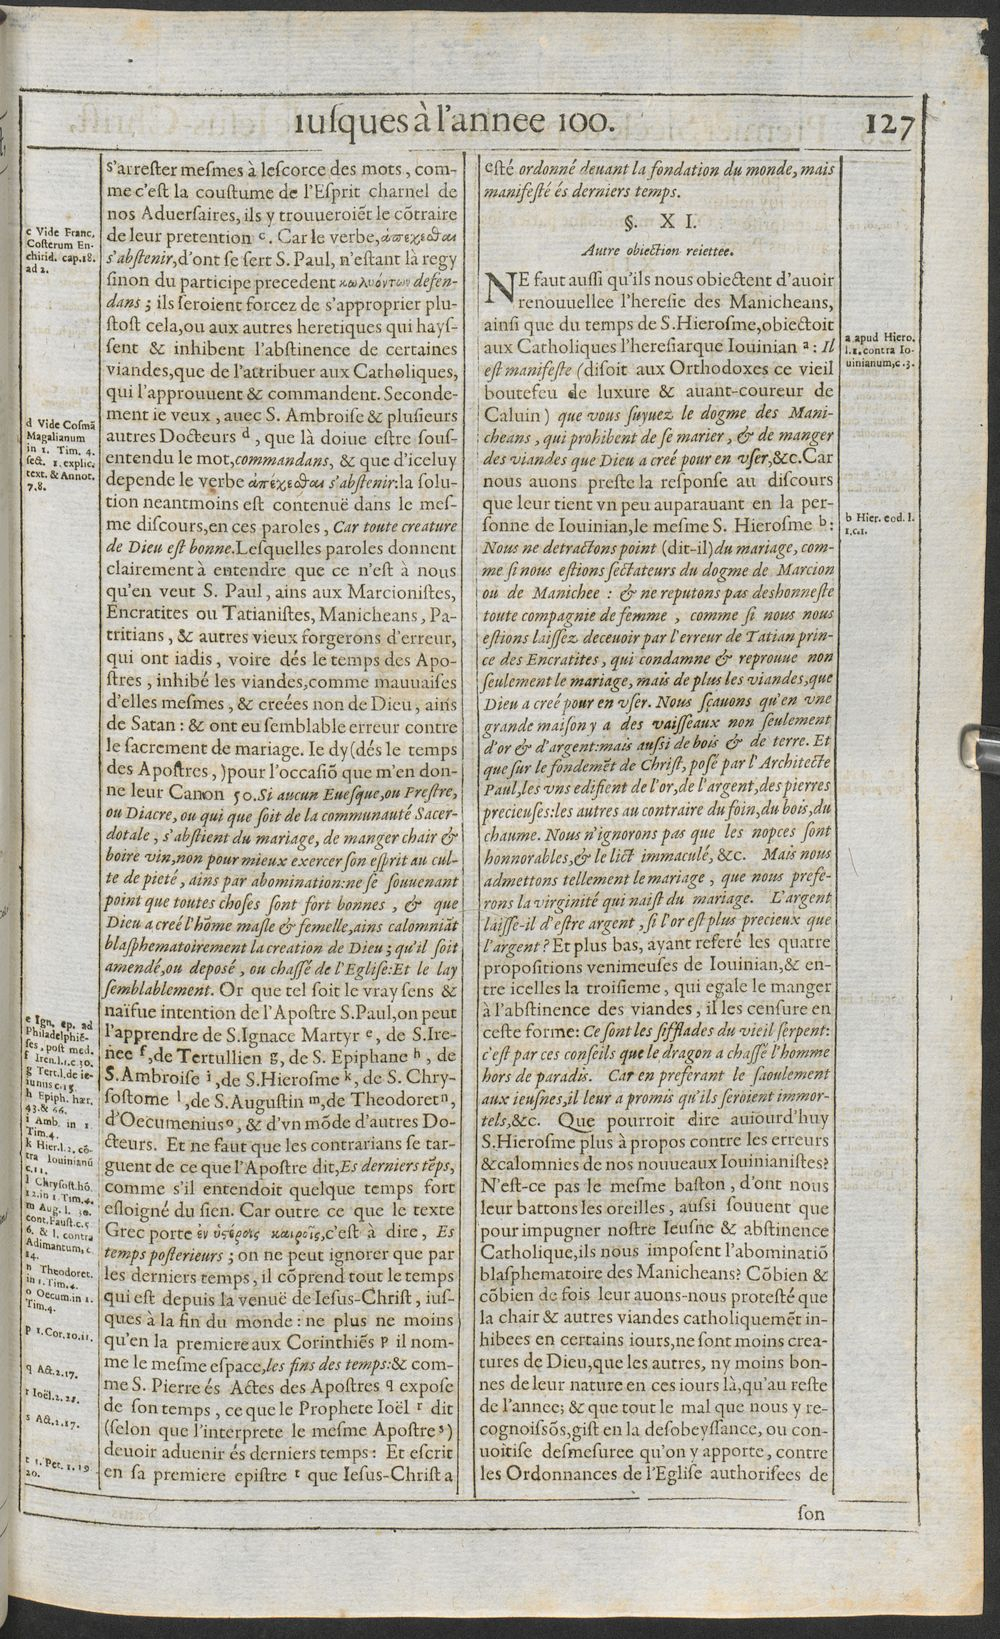 iuſques à l'annee 100.
127
s'arreſter meſmes à leſcorce des mots, com-
me c'eſt la couſtume de l'Eſprit charnel de
nos Aduerſaires, ils y trouueroiẽt le cõtraire
de leur pretention c. Car le verbe, ἀπέχεσθαι
s'abſtenir, d'ont ſe ſert S. Paul, n'eſtant là regy
ſinon du participe precedent κωλυόντων defen-
dans; ils ſeroient forcez de s'approprier plu-
ſtoſt cela, ou aux autres heretiques qui hayſ-
ſent & inhibent l'abſtinence de certaines
viandes, que de l'attribuer aux Catholiques,
qui l'approuuent & commandent. Seconde-
ment ie veux, auec S. Ambroiſe & pluſieurs
autres Docteurs d, que là doiue eſtre ſouſ-
entendu le mot, commandans, & que d'iceluy
depende le verbe ἀπέχεσθαι s'abſtenir: la ſolu-
tion neantmoins eſt contenuë dans le meſ-
me diſcours, en ces paroles, Car toute creature
de Dieu eſt bonne. Leſquelles paroles donnent
clairement à entendre que ce n'eſt à nous
qu'en veut S. Paul, ains aux Marcioniſtes,
Encratites ou Tatianiſtes, Manicheans, Pa-
tritians, & autres vieux forgerons d'erreur,
qui ont iadis, voire dés le temps des Apo-
ſtres, inhibé les viandes, comme mauuaiſes
d'elles meſmes, & creées non de Dieu, ains
de Satan: & ont eu ſemblable erreur contre
le ſacrement de mariage. Ie dy (dés le temps
des Apoſtres,) pour l'occaſiõ que m'en don-
ne leur Canon 50. Si aucun Eueſque, ou Preſtre,
ou Diacre, ou qui que ſoit de la communauté Sacer-
dotale, s'abſtient du mariage, de manger chair &
boire vin, non pour mieux exercer ſon eſprit au cul-
te de pieté, ains par abomination: ne ſe ſouuenant
point que toutes choſes ſont fort bonnes, & que
Dieu a creé l'hõme maſle & femelle, ains calomniãt
blaſphematoirement la creation de Dieu; qu'il ſoit
amendé, ou depoſé, ou chaſſé de l'Egliſe: Et le lay
ſemblablement. Or que tel ſoit le vray ſens &
naïfue intention de l'Apoſtre S. Paul, on peut
l'apprendre de S. Ignace Martyr e, de S. Ire-
nee f, de Tertullien g, de S. Epiphane h, de
S. Ambroiſe i, de S. Hieroſme k, de S. Chry-
ſoſtome l, de S. Auguſtin m, de Theodoret n,
d'Oecumenius o, & d'vn mõde d'autres Do-
cteurs. Et ne faut que les contrarians ſe tar-
guent de ce que l'Apoſtre dit, Es derniers tẽps,
comme s'il entendoit quelque temps fort
eſloigné du ſien. Car outre ce que le texte
Grec porte ἐν ὑστέροις καιροῖς, c'eſt à dire, Es
temps poſterieurs; on ne peut ignorer que par
les derniers temps, il cõprend tout le temps
qui eſt depuis la venuë de Ieſus-Chriſt, iuſ-
ques à la fin du monde: ne plus ne moins
qu'en la premiere aux Corinthiẽs p il nom-
me le meſme eſpace, les fins des temps: & com-
me S. Pierre és Actes des Apoſtres q expoſe
de ſon temps, ce que le Prophete Ioël r dit
(ſelon que l'interprete le meſme Apoſtre s)
deuoir aduenir és derniers temps: Et eſcrit
en ſa premiere epiſtre t que Ieſus-Chriſt a
c Vide Franc.
Coſterum En-
chirid. cap. 18.
ad 2.
d Vide Coſmã
Magalianum
in 1. Tim. 4.
ſect. 1. explic.
text. & Annot.
7.8.
e Ign. ep. ad
Philadelphiẽ-
ſes, poſt med.
f Iren. l. 1. c. 30.
g Tert. l. de ie-
iunus c. 15
h Epiph. hær.
43. & 66.
i Amb. in 1.
Tim. 4.
k Hier. l. 2. cõ-
tra Iouinianũ
c. 11.
l Chryſoſt. hô.
12. in 1. Tim. 4.
m Aug. l. 30.
cont. Fauſt. c. 5
6. & l. contra
Adimantum, c.
14.
n Theodoret.
in 1. Tim. 4.
o Oecum. in 1.
Tim. 4.
p 1. Cor. 10. 11.
q Act. 2. 17.
r Ioël. 2. 28.
s Act. 2. 17.
t 1. Pet. 1. 19
20.
eſté ordonné deuant la fondation du monde, mais
manifeſté és derniers temps.
§. XI.
Autre obiection reiettee.
NE faut auſſi qu'ils nous obiectent d'auoir
renouuellee l'hereſie des Manicheans,
ainſi que du temps de S. Hieroſme, obiectoit
aux Catholiques l'hereſiarque Iouinian a: Il
eſt manifeſte (diſoit aux Orthodoxes ce vieil
boutefeu de luxure & auant-coureur de
Caluin) que vous ſuyuez le dogme des Mani-
cheans, qui prohibent de ſe marier, & de manger
des viandes que Dieu a creé pour en vſer, &c. Car
nous auons preſte la reſponſe au diſcours
que leur tient vn peu auparauant en la per-
ſonne de Iouinian, le meſme S. Hieroſme b:
Nous ne detractons point (dit-il) du mariage, com-
me ſi nous eſtions ſectateurs du dogme de Marcion
ou de Manichee: & ne reputons pas deshonneſte
toute compagnie de femme, comme ſi nous nous
eſtions laiſſez deceuoir par l'erreur de Tatian prin-
ce des Encratites, qui condamne & reprouue non
ſeulement le mariage, mais de plus les viandes, que
Dieu a creé pour en vſer. Nous ſçauons qu'en vne
grande maiſon y a des vaiſſeaux non ſeulement
d'or & d'argent: mais auſsi de bois & de terre. Et
que ſur le fondemẽt de Chriſt, poſé par l'Architecte
Paul, les vns edifient de l'or, de l'argent, des pierres
precieuſes: les autres au contraire du foin, du bois, du
chaume. Nous n'ignorons pas que les nopces ſont
honnorables, & le lict immaculé, &c. Mais nous
admettons tellement le mariage, que nous prefe-
rons la virginité qui naiſt du mariage. L'argent
laiſſe-il d'eſtre argent, ſi l'or eſt plus precieux que
l'argent? Et plus bas, ayant referé les quatre
propoſitions venimeuſes de Iouinian, & en-
tre icelles la troiſieme, qui egale le manger
à l'abſtinence des viandes, il les cenſure en
ceſte forme: Ce ſont les ſifflades du vieil ſerpent:
c'eſt par ces conſeils que le dragon a chaſſé l'homme
hors de paradis. Car en preferant le ſaoulement
aux ieuſnes, il leur a promis qu'ils ſeroient immor-
tels, &c. Que pourroit dire auiourd'huy
S. Hieroſme plus à propos contre les erreurs
& calomnies de nos nouueaux Iouinianiſtes?
N'eſt-ce pas le meſme baſton, d'ont nous
leur battons les oreilles, auſsi ſouuent que
pour impugner noſtre Ieuſne & abſtinence
Catholique, ils nous impoſent l'abominatiõ
blaſphematoire des Manicheans? Cõbien &
cõbien de fois leur auons-nous proteſté que
la chair & autres viandes catholiquemẽt in-
hibees en certains iours, ne ſont moins crea-
tures de Dieu, que les autres, ny moins bon-
nes de leur nature en ces iours là, qu'au reſte
de l'annee; & que tout le mal que nous y re-
cognoiſsõs, giſt en la deſobeyſſance, ou con-
uoitiſe deſmeſuree qu'on y apporte, contre
les Ordonnances de l'Egliſe authoriſees de
a apud Hiero.
l. 1. contra Io-
uinianum, c. 3.
b Hier. eod. l.
1. c. 1.
ſon